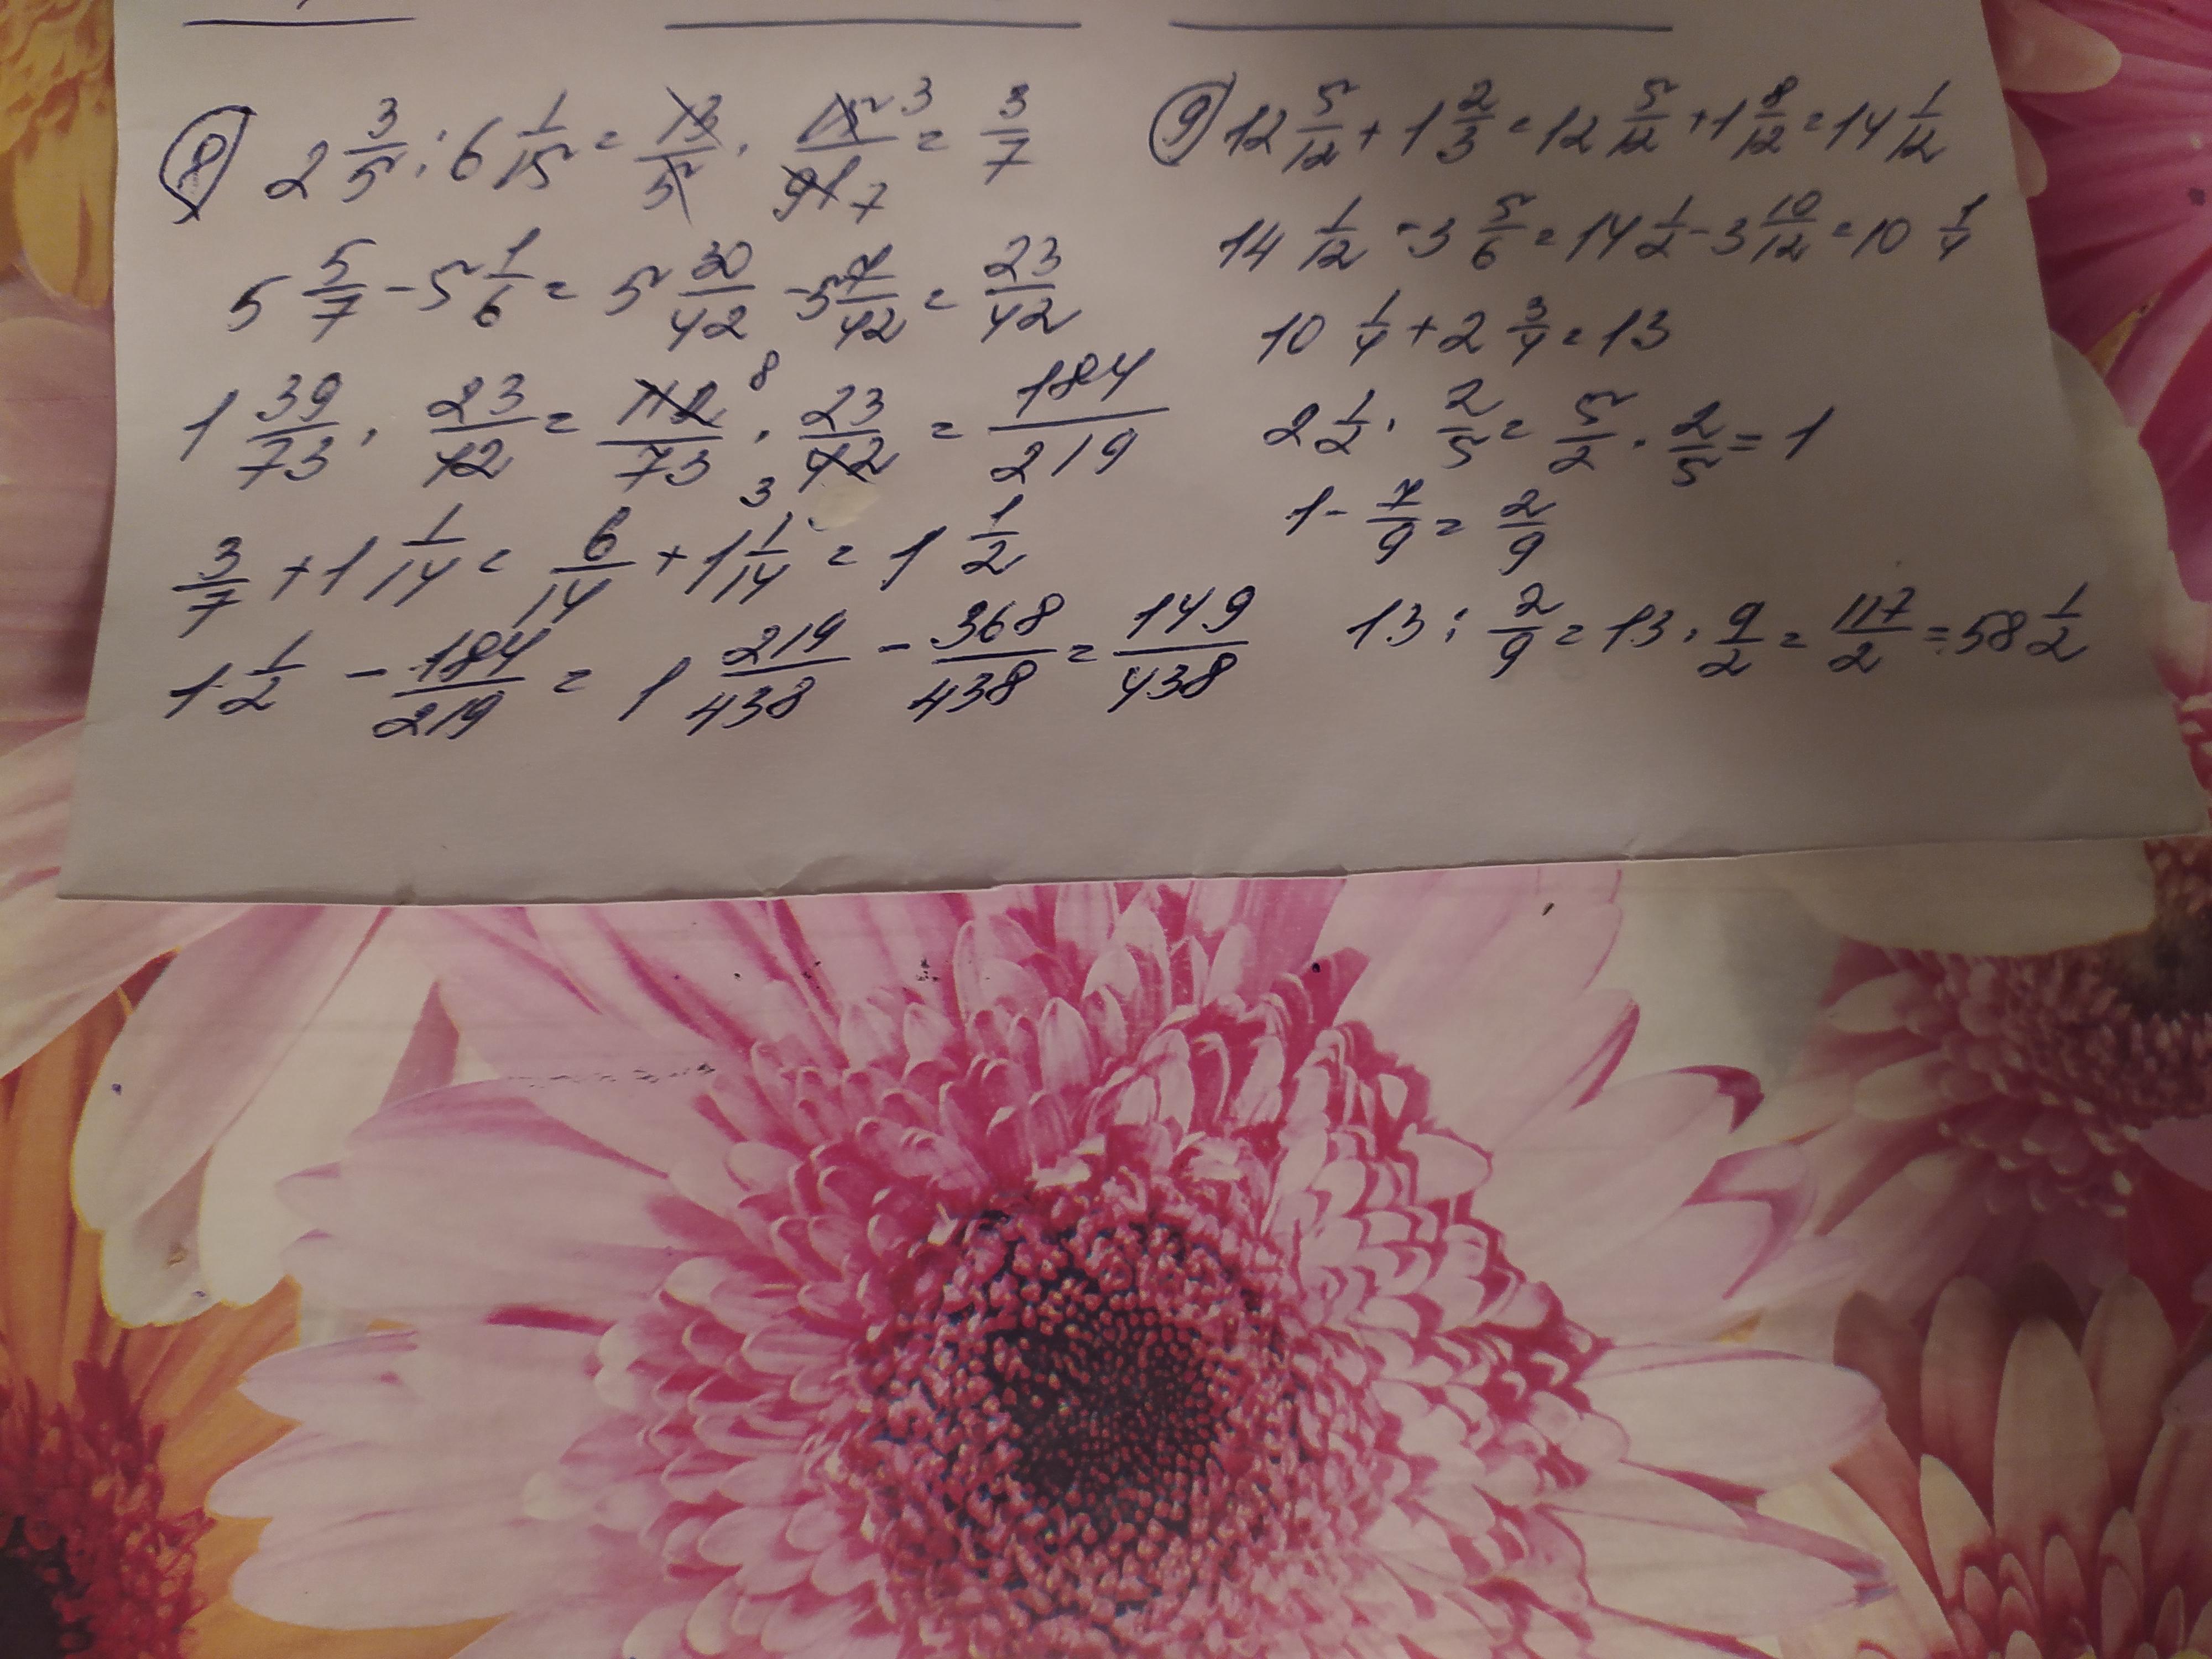 ⑧ 2 3/5 : 6 1/15 = 13/5 · 15/91 3 7 = 3/7
5 5/7 - 5 1/6 = 5 30/42 - 5 7/42 = 23/42
1 39/73 · 23/42 = 112/73 8 · 23/42 3 = 184/219
3/7 + 1 1/14 = 6/14 + 1 1/14 = 1 1/2
1 1/2 - 184/219 = 1 219/438 - 368/438 = 149/438
⑨ 12 5/12 + 1 2/3 = 12 5/12 + 1 8/12 = 14 1/12
14 1/12 - 3 5/6 = 14 1/2 - 3 10/12 = 10 1/4
10 1/4 + 2 3/4 = 13
2 1/2 · 2/5 = 5/2 · 2/5 = 1
1 - 7/9 = 2/9
13 : 2/9 = 13 · 9/2 = 117/2 = 58 1/2